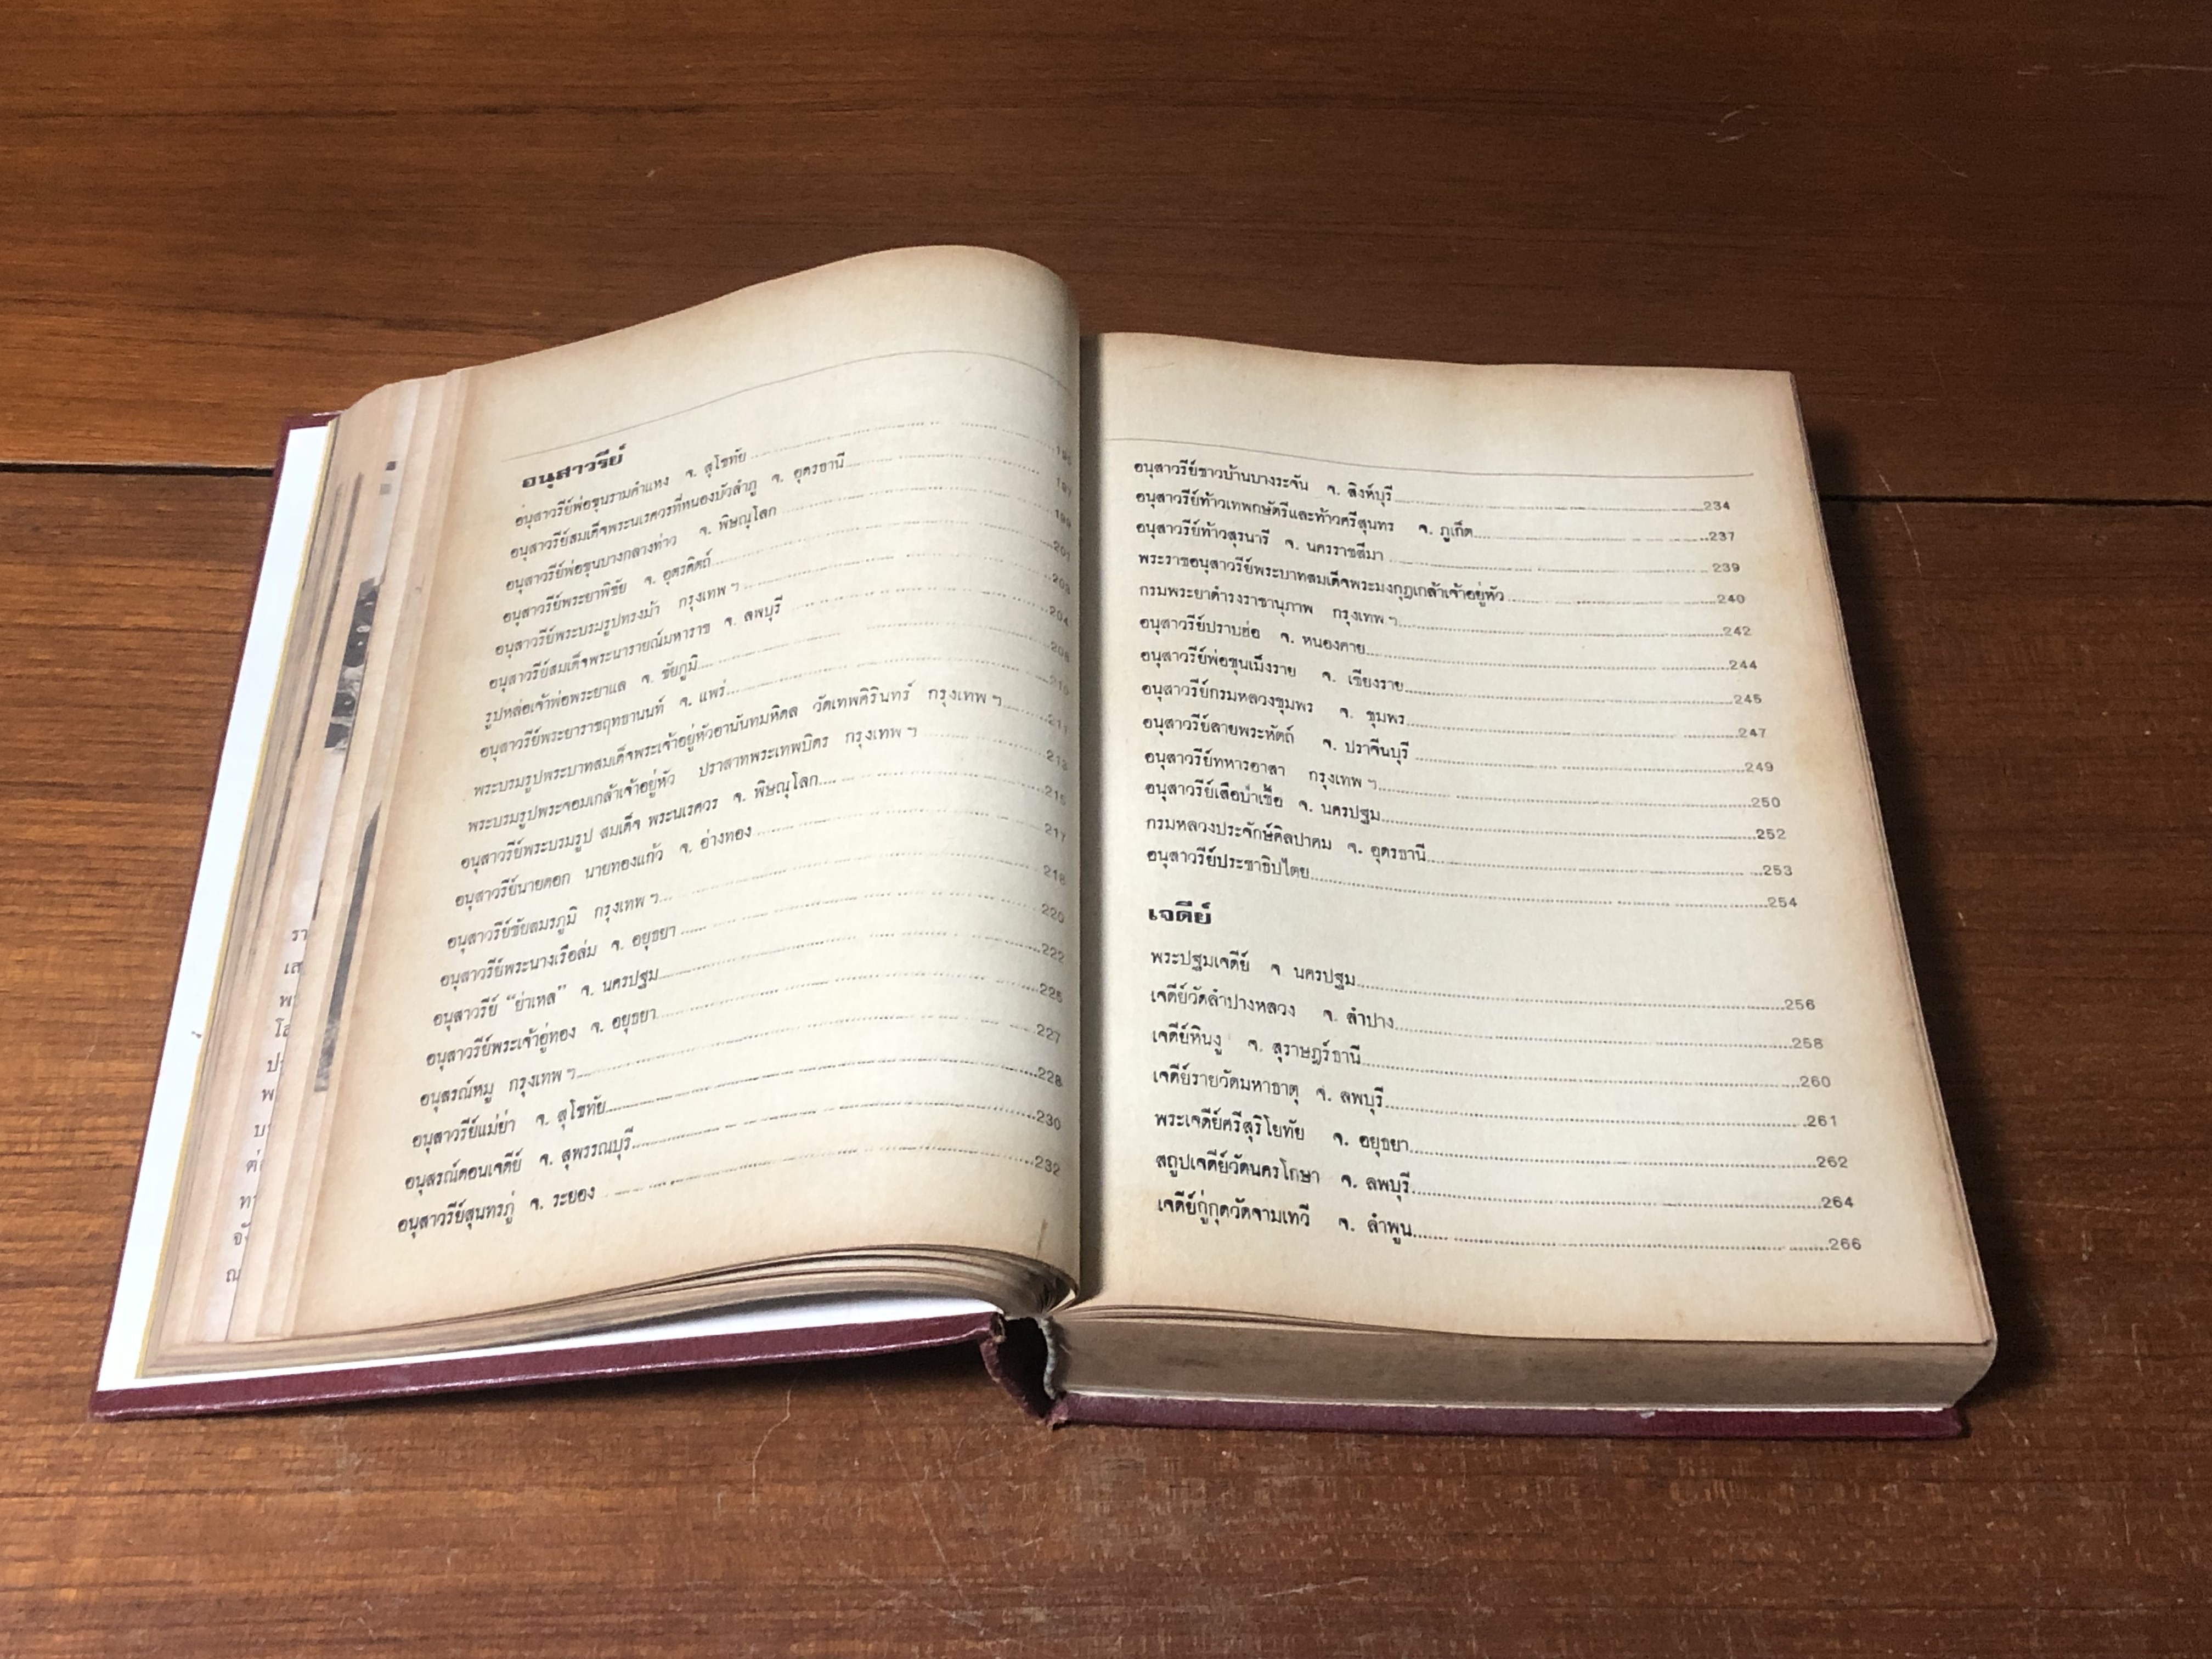 อนุสาวรีย์
อนุสาวรีย์พ่อขุนรามคำแหง จ. สุโขทัย
อนุสาวรีย์สมเด็จพระนเรศวรที่หนองบัวลำภู จ. อุดรธานี 197
อนุสาวรีย์พ่อขุนบางกลางท่าว จ. พิษณุโลก 199
อนุสาวรีย์พระยาพิชัย จ. อุตรดิตถ์ 201
อนุสาวรีย์พระบรมรูปทรงม้า กรุงเทพ ฯ 203
อนุสาวรีย์สมเด็จพระนารายณ์มหาราช จ. ลพบุรี 204
รูปหล่อเจ้าพ่อพระยาแล จ. ชัยภูมิ
อนุสาวรีย์พระยาราชฤทธานนท์ จ. แพร่
พระบรมรูปพระบาทสมเด็จพระเจ้าอยู่หัวอานันทมหิดล วัดเทพศิรินทร์ กรุงเทพ ฯ 211
พระบรมรูปพระจอมเกล้าเจ้าอยู่หัว ปราสาทพระเทพบิดร กรุงเทพ ฯ 213
อนุสาวรีย์พระบรมรูป สมเด็จ พระนเรศวร จ. พิษณุโลก
อนุสาวรีย์นายดอก นายทองแก้ว จ. อ่างทอง 217
อนุสาวรีย์ชัยสมรภูมิ กรุงเทพ ฯ 218
อนุสาวรีย์พระนางเรือล่ม จ. อยุธยา 220
อนุสาวรีย์ “ย่าเหล” จ. นครปฐม 222
อนุสาวรีย์พระเจ้าอู่ทอง จ. อยุธยา 225
อนุสรณ์หมู กรุงเทพ ฯ 227
อนุสาวรีย์แม่ย่า จ. สุโขทัย 228
อนุสรณ์ดอนเจดีย์ จ. สุพรรณบุรี 230
อนุสาวรีย์สุนทรภู่ จ. ระยอง 232
อนุสาวรีย์ชาวบ้านบางระจัน จ. สิงห์บุรี 234
อนุสาวรีย์ท้าวเทพกษัตรีและท้าวศรีสุนทร จ. ภูเก็ต 237
อนุสาวรีย์ท้าวสุรนารี จ. นครราชสีมา 239
พระราชอนุสาวรีย์พระบาทสมเด็จพระมงกุฎเกล้าเจ้าอยู่หัว 240
กรมพระยาดำรงราชานุภาพ กรุงเทพ ฯ 242
อนุสาวรีย์ปราบฮ่อ จ. หนองคาย 244
อนุสาวรีย์พ่อขุนเม็งราย จ. เชียงราย 245
อนุสาวรีย์กรมหลวงชุมพร จ. ชุมพร 247
อนุสาวรีย์ลายพระหัตถ์ จ. ปราจีนบุรี 249
อนุสาวรีย์ทหารอาสา กรุงเทพ ฯ 250
อนุสาวรีย์เสือป่าเชื้อ จ. นครปฐม 252
กรมหลวงประจักษ์ศิลปาคม จ. อุดรธานี 253
อนุสาวรีย์ประชาธิปไตย 254
เจดีย์
พระปฐมเจดีย์ จ นครปฐม 256
เจดีย์วัดลำปางหลวง จ. ลำปาง 258
เจดีย์หินงู จ. สุราษฎร์ธานี 260
เจดีย์รายวัดมหาธาตุ จ. ลพบุรี 261
พระเจดีย์ศรีสุริโยทัย จ. อยุธยา 262
สถูปเจดีย์วัดนครโกษา จ. ลพบุรี 264
เจดีย์กู่กุดวัดจามเทวี จ. ลำพูน 266